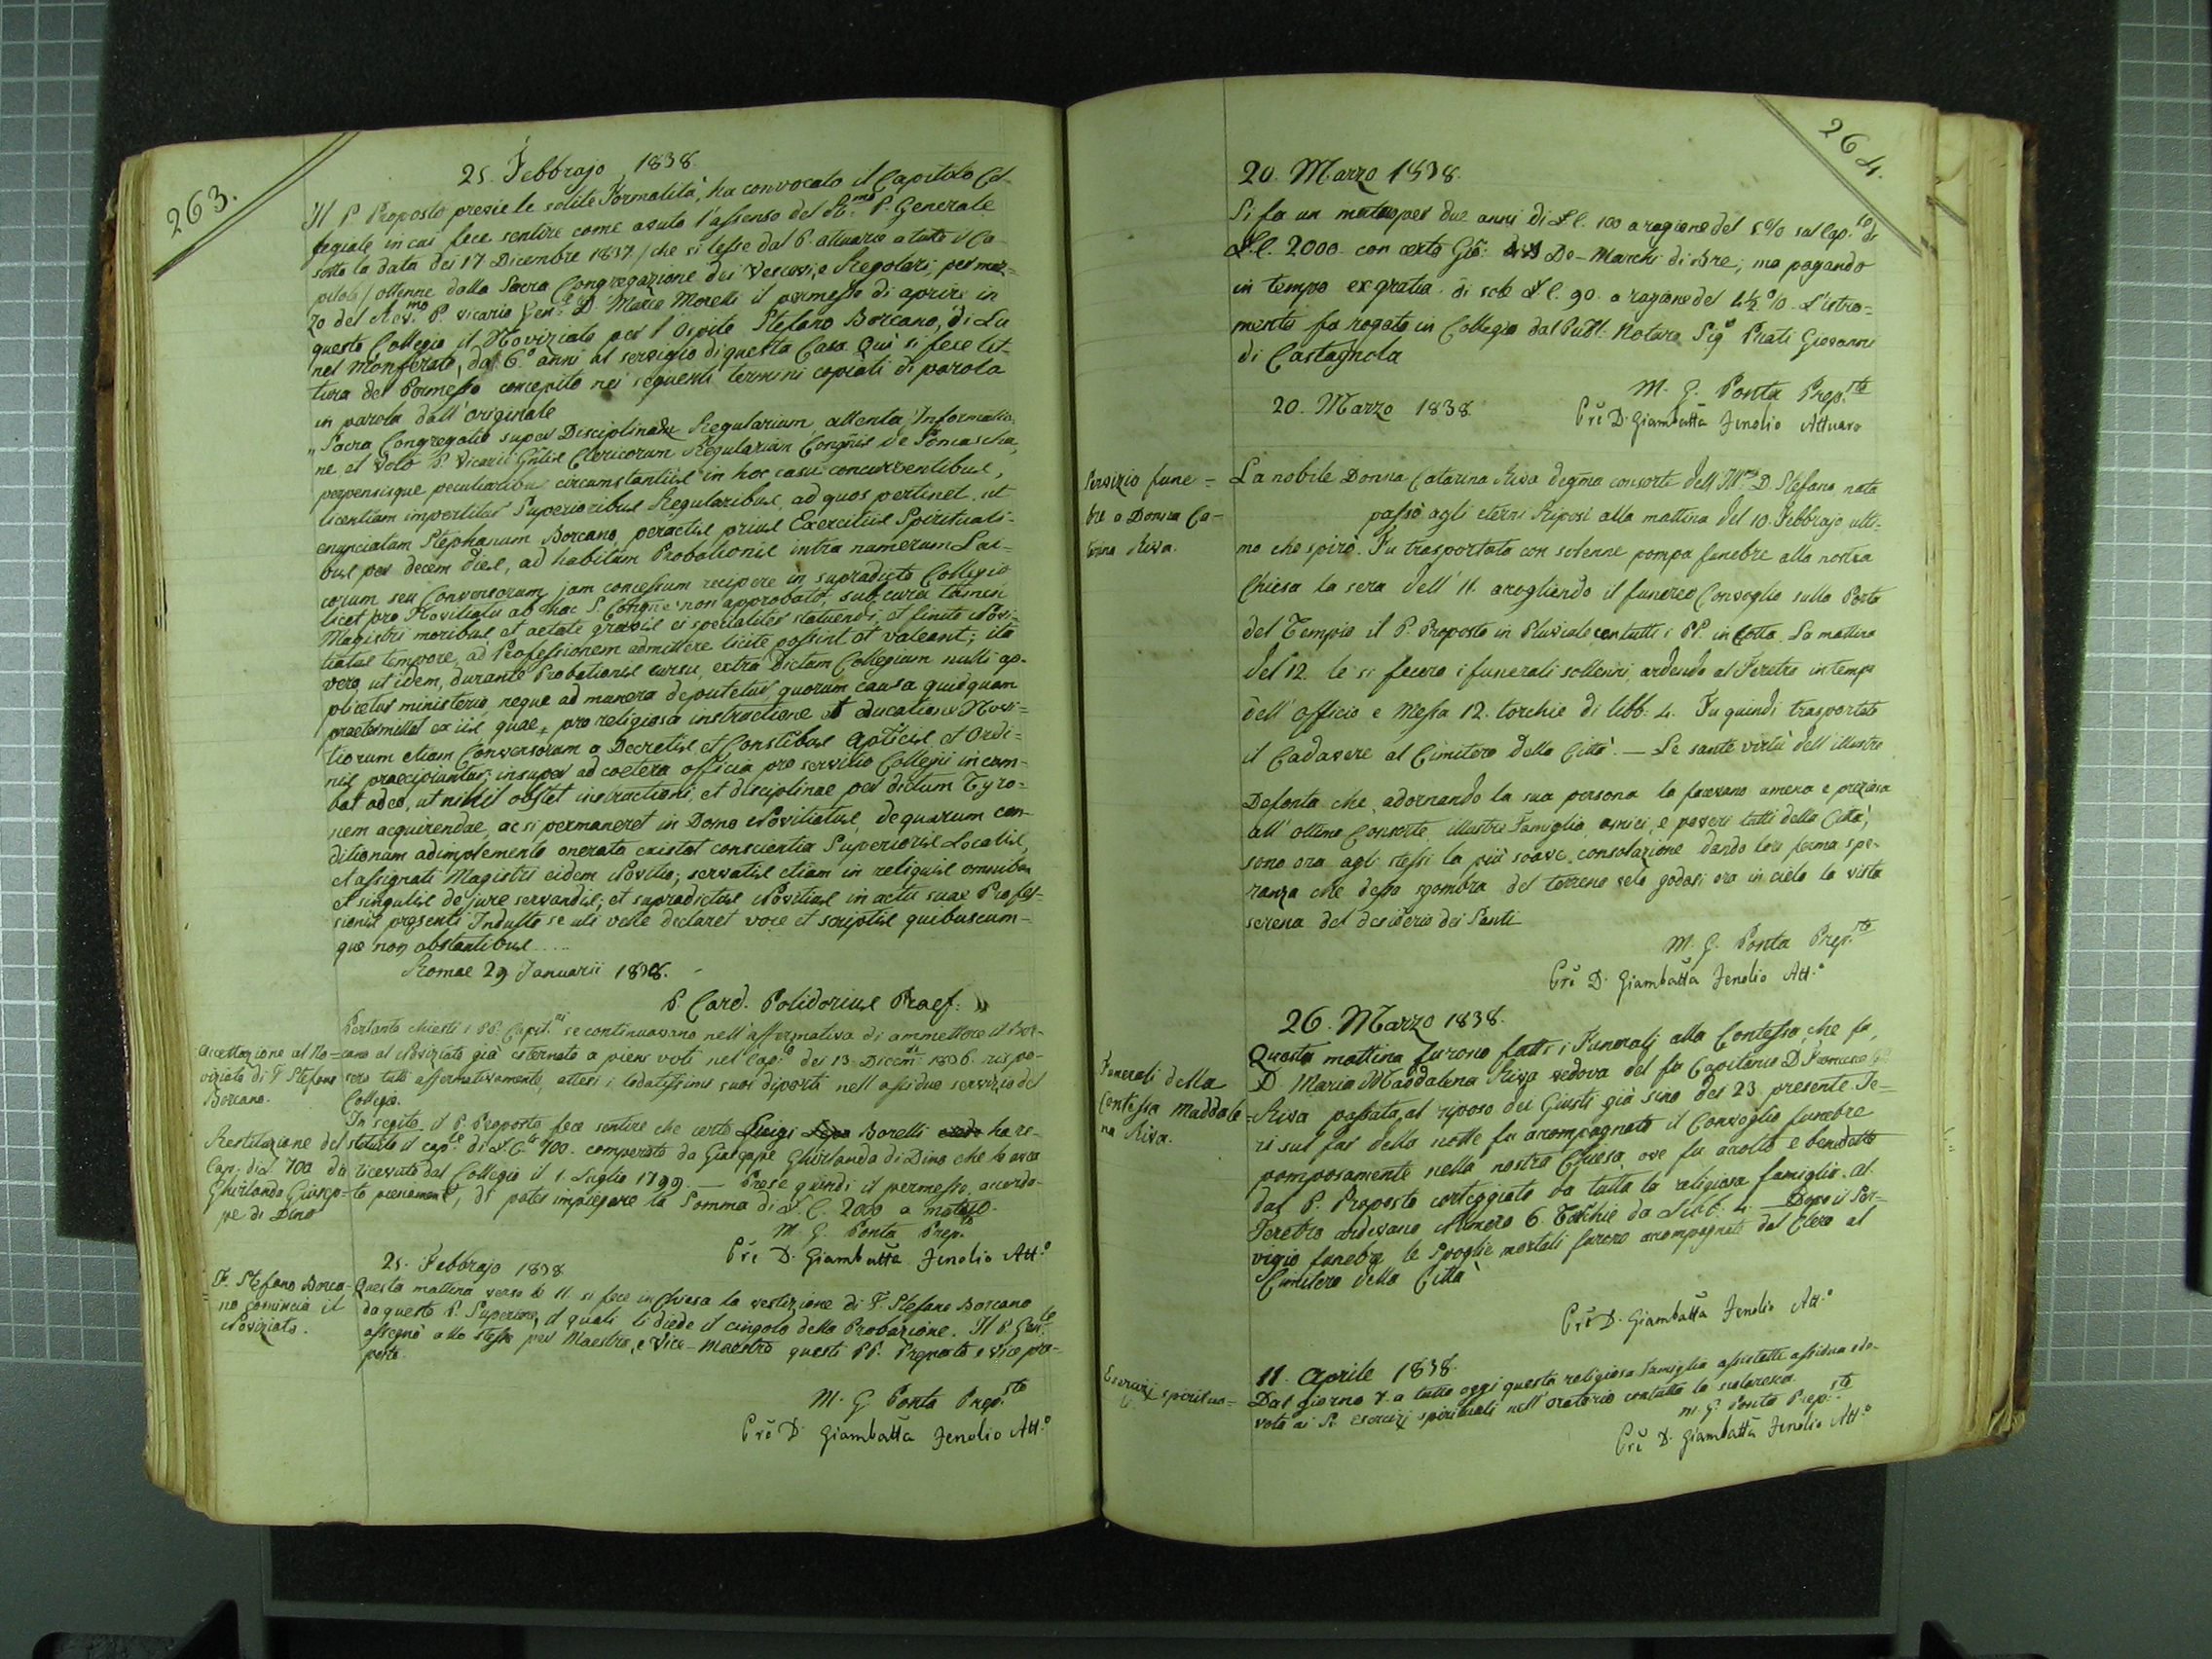 263.
25. Febbrajo 1838.
Il P. Proposto previe le solite Formalità, ha convocato il Capitolo Col-
legiale in cui fece sentire come avuto l'assenso del R.mo P. Generale
sotto la data dei 17 Dicembre 1837 / che si lesse dal P. attuario a tutto il Ca-
pitolo / ottenne dalla Sacra Congregazione dei Vescovi, e Regolari, per mez-
zo del Rev.mo P. Vicario Gen.le D. Mario Morelli il permesso di aprire in
questo Collegio il Noviziato per l'Ospite Stefano Borcano, di Lu
nel Monferato, da 6.o anni al servigio di questa Casa. Qui si fece let-
tura del Permesso concepito nei seguenti termini copiati di parola
in parola dall'originale
„ Sacra Congregatio super Disciplina Regularium, attenta Informatio-
ne, et Voto P. Vicarii Gnlis Clericorum Regularium Congnis de Somascha,
perpensisque peculiaribus circumstantiis in hoc casu concurrentibus,
licentiam impertitur Superioribus Regularibus, ad quos pertinet, ut
enunciatum Stephanum Borcano, peractis prius Exercitiis Spirituali-
bus per decem dies, ad habitum Probationis intra numerum Lai-
corum seu Conversorum jam concessum recipere in supradicto Collegio
licet pro Novitiatu ab hac S. Congne non approbato, sub cura tamen
Magistri moribus et aetate gravis ei specialiter statuendi, et finito Novi-
tiatus tempore, ad Professionem admittere licite possint et valeant; ita
vero, ut idem, durante Probationis cursu, extra dictum Collegium nulli ap-
plicetur ministerio, neque ad munera deputetur quorum causa quidquam
praetermittat ex iis, quae pro religiosa instructione et educatione Novi-
tiorum etiam Conversorum a Decretis et Constibus Apticis et Ordi-
nis praecipiantur; insuper ad coetera officia pro servitio Collegii incum-
bat adeo, ut nihil obstet instructioni, et disciplinae per dictum Tyro-
nem acquirendae, ac si permaneret in Domo Novitiatus, de quarum con-
ditionum adimplemento onerata existat conscientia Superioris Localis,
et assignati Magistri eidem Novitio; servatis etiam in reliquis omnibus
et singulis de jure servandis, et supradictus Novitius in actu suae Profes-
sionis presenti Indulto se uti velle declaret voce et scriptis quibuscum-
que non obstantibus ....
Romae 29 Januarii 1838. -
P. Card. Polidorius Praef: "
Accettazione al No-
viziato di F. Stefano
Borcano.
Pertanto chiesti i PP. Capit.ri se continuavano nell'affermativa di ammettere il Bor-
cano al Noviziato già esternato a pieni voti nel Cap.lo dei 13. Dicem.re 1836. rispo-
sero tutti affermativamente, attesi i lodatissimi suoi diporti nell'assiduo servizio del
Collegio.
Restituzione del
Cap: di £. 700 da
Ghirlanda Giusep-
pe di Dino
In seguito il P. Proposto fece sentire che certo Luigi Borelli ha re-
stituito il cap.le di £. C. 700. comperato da Giuseppe Ghirlanda di Dino che lo avea
ricevuto dal Collegio il 1. Luglio 1799. — Prese quindi il permesso, accorda-
to pienamente, di poter impiegare la Somma di £. C. 2000 a mutuo.
M. G. Ponta Prep.to
Pre D. Giambatta Fenolio Att.o
25. Febbrajo 1838
F. Stefano Borca-
no comincia il
Noviziato.
Questa mattina verso le 11. si fece in Chiesa la vestizione di F. Stefano Borcano
da questo P. Superiore, il quale li diede il cingolo della Probazione. Il P. Gen.le
assegnò allo stesso per Maestro, e Vice-Maestro questi PP. Preposto e Vice pre-
posto.
M. G. Ponta Prep.sto
Pre D. Giambatta Fenolio Att.o
264.
20. Marzo 1838.
Si fa un mutuo per due anni di £ C. 100 a ragione del 5 % sul Cap.le di
£ C. 2000. con certo Gio: De-Marchi di Bre; ma pagando
in tempo ex gratia di sole £ C. 90. a ragione del 4½ %. L'istro-
mento fu rogato in Collegio dal Publ. Notaro Sig.r Prati Giovanni
di Castagnola
M. G. Ponta Prep.sto
Pre D. Giambatta Fenolio Attuaro
20. Marzo 1838
Servizio fune-
bre a Donna Ca-
terina Riva.
La nobile Donna Catarina Riva degma consorte dell'Ill.mo D. Stefano, nata
passò agli eterni Riposi alla mattina del 10. Febbrajo ulti-
mo che spirò. Fu trasportata con solenne pompa funebre alla nostra
Chiesa la sera dell'11. accogliendo il funereo Convoglio sulla Porta
del Tempio il P. Proposto in Pluviale con tutti i PP. in Cotta. La mattina
del 12. le si fecero i funerali sollenni, ardendo al Feretro in tempo
dell'officio e Messa 12. torchie di libb: 4. Fu quindi trasportato
il Cadavere al Cimitero della Città. — Le sante virtù dell'illustre
Defonta che adornando la sua persona la facevano amena e preziosa
all'ottimo Consorte, illustre Famiglia, amici, e poveri tutti della Città,
sono ora agli stessi la più soave consolazione dando loro ferma spe-
ranza che dessa sgombra del terreno velo godasi ora in cielo la vista
serena del desiderio dei Santi
M. G. Ponta Prep.sto
Pre D. Giambatta Fenolio Att.o
26. Marzo 1838.
Funerali della
Contessa Maddale-
na Riva.
Questa mattina furono fatti i Funerali alla Contessa, che fu,
D. Maria Maddalena Riva vedova del fu Capitanio D. Francesco
Riva passata al riposo dei Giusti già sino dei 23 presente. Je-
ri sul far della notte fu accompagnato il Convoglio funebre
pomposamente nella nostra Chiesa, ove fu accolto e benedetto
dal P. Proposto corteggiato da tutta la religiosa famiglia. Al
Feretro ardevano Numero 6. Torchie da Libb: 4. — Dopo il Ser-
vigio funebre le spoglie mortali furono accompagnate dal Clero al
Cimitero della Città
Pre D. Giambatta Fenolio Att.o
11. Aprile 1838.
Esercizj spiritua-
li.
Dal giorno 7. a tutto oggi questa religiosa Famiglia assistette assidua e de-
vota ai Sti esercizj spirituali nell'oratorio con tutta la scolaresca.
M. G. Ponta Prep.sto
Pre D. Giambatta Fenolio Att.o